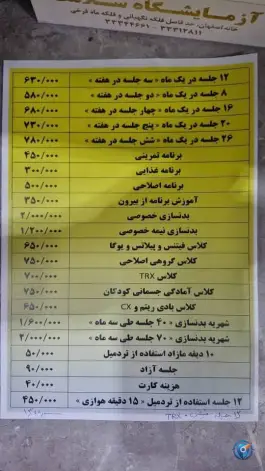 آزمایشگاه
۳۳۳۴۴۶۶۱ - ۳۳۳۱۳۸۱۶
۱۲ جلسه در یک ماه « سه جلسه در هفته » ۶۳۰/۰۰۰
۸ جلسه در یک ماه « دو جلسه در هفته » ۵۸۰/۰۰۰
۱۶ جلسه در یک ماه « چهار جلسه در هفته » ۶۸۰/۰۰۰
۲۰ جلسه در یک ماه « پنج جلسه در هفته » ۷۳۰/۰۰۰
۲۶ جلسه در یک ماه « شش جلسه در هفته » ۷۸۰/۰۰۰
برنامه تمرینی ۴۵۰/۰۰۰
برنامه غذایی ۳۰۰/۰۰۰
برنامه اصلاحی ۵۰۰/۰۰۰
آموزش برنامه از بیرون ۳۵۰/۰۰۰
بدنسازی خصوصی ۲/۰۰۰/۰۰۰
بدنسازی نیمه خصوصی ۱/۲۰۰/۰۰۰
کلاس فیتنس و پیلاتس و یوگا ۶۵۰/۰۰۰
کلاس گروهی اصلاحی ۷۵۰/۰۰۰
کلاس TRX ۷۰۰/۰۰۰
کلاس آمادگی جسمانی کودکان ۷۵۰/۰۰۰
کلاس بادی ریتم و CX ۶۵۰/۰۰۰
شهریه بدنسازی « ۴۰ جلسه طی سه ماه » ۱/۶۰۰/۰۰۰
شهریه بدنسازی « ۷۰ جلسه طی سه ماه » ۲/۰۰۰/۰۰۰
۱۰ دیقه مازاد استفاده از تردمیل ۵۰/۰۰۰
جلسه آزاد ۹۰/۰۰۰
هزینه کارت ۴۰/۰۰۰
۱۲ جلسه استفاده از تردمیل « ۱۵ دقیقه هوازی » ۴۵۰/۰۰۰
TRX